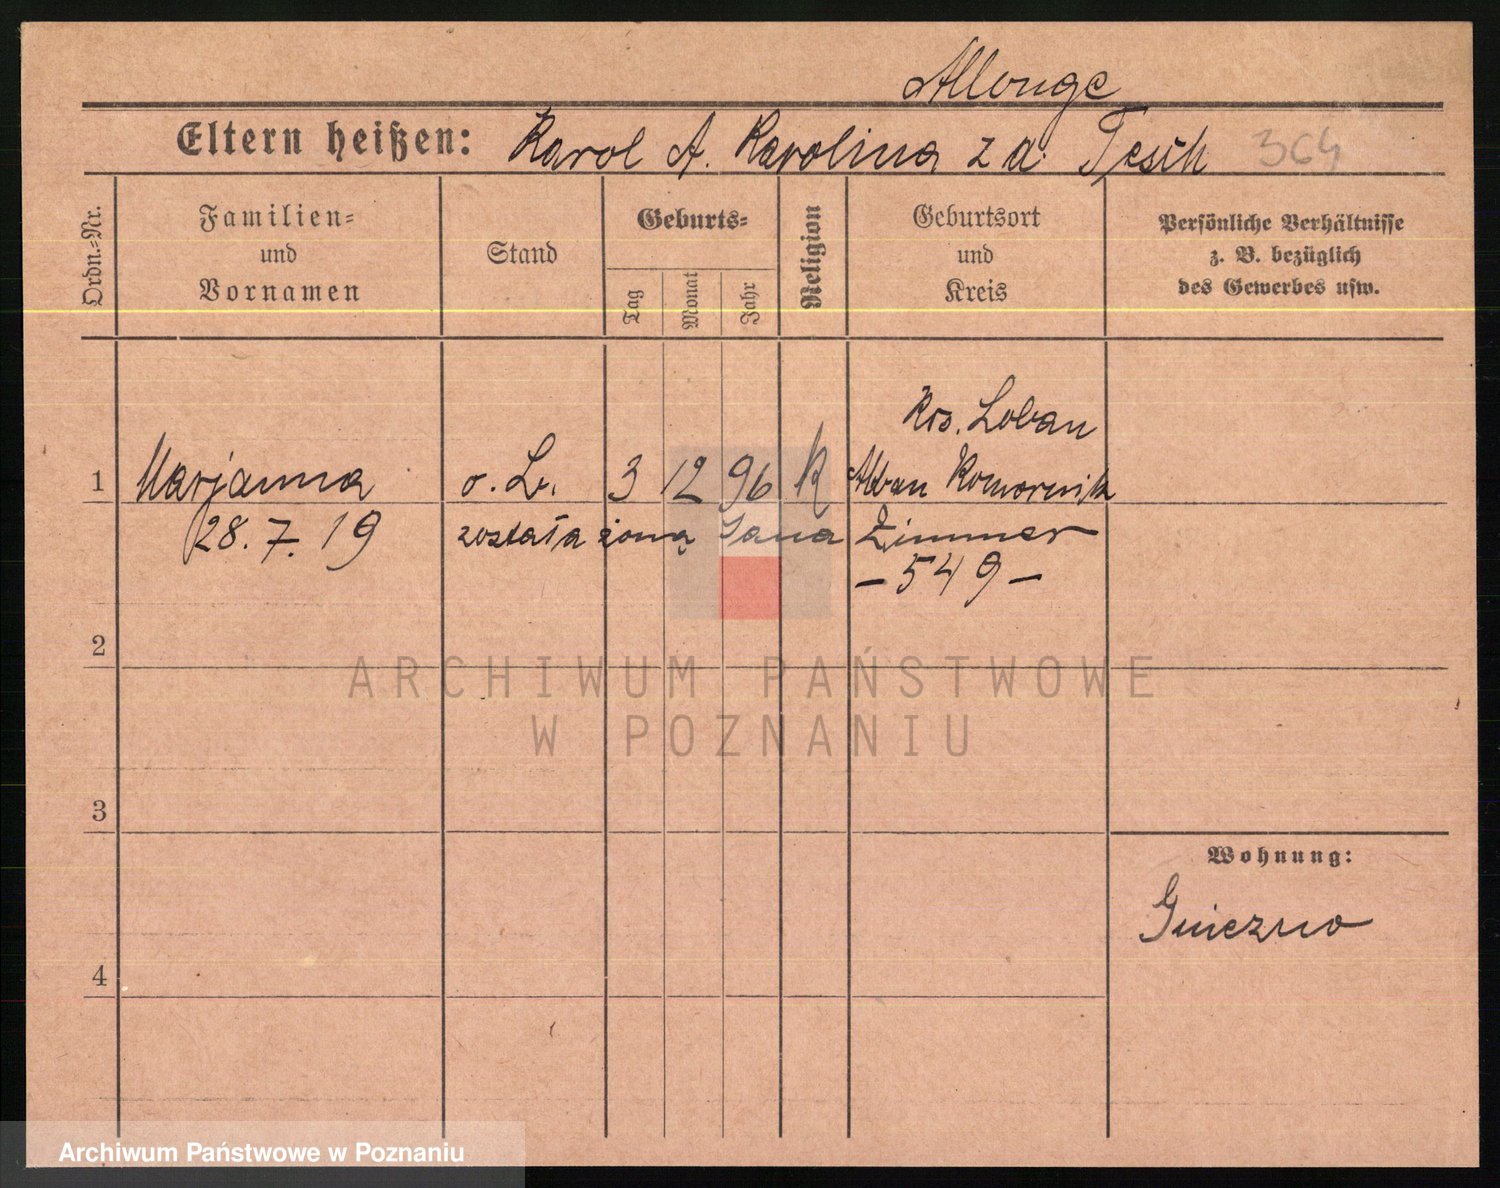 Allonge
Eltern heißen: Karol A. Karolina z d. Tesch 364
Ordn.=Nr.
Familien=
und
Vornamen
Stand
Geburts=
Tag
Monat
Jahr
Religion
Geburtsort
und
Kreis
Persönliche Verhältnisse
z. B. bezüglich
des Gewerbes usw.
Kos. Loban
1 Marjanna o. L. 3 12 96 K Komornik
28.7.19 została żoną Jana Zimmer
– 549 –
2
ARCHIWUM PAŃSTWOWE
W POZNANIU
3
Wohnung:
Gniezno
4
Archiwum Państwowe w Poznaniu